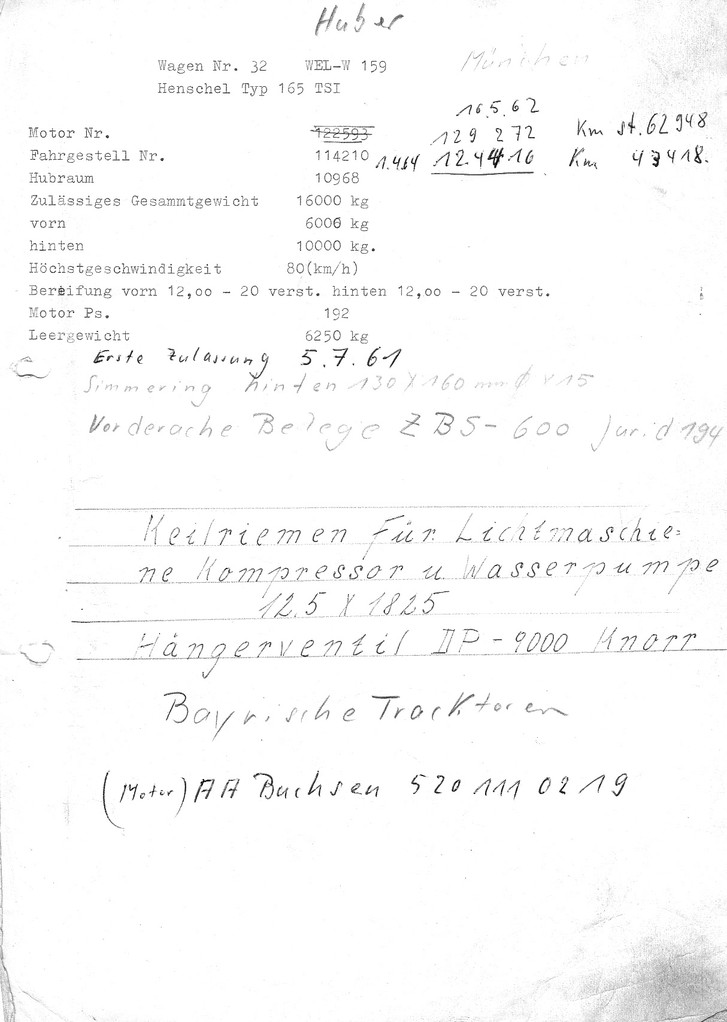 Huber
Wagen Nr. 32 WEL-W 159 München
Henschel Typ 165 TSI
16.5.62
Motor Nr. 122593 129 272 Km st. 62948
Fahrgestell Nr. 114210 1.464 12.4416 Km 47418.
Hubraum 10968
Zulässiges Gesammtgewicht 16000 kg
vorn 6000 kg
hinten 10000 kg.
Höchstgeschwindigkeit 80(km/h)
Bereifung vorn 12,oo - 20 verst. hinten 12,oo - 20 verst.
Motor Ps. 192
Leergewicht 6250 kg
Erste Zulassung 5.7.61
Simmering hinten 130 X 160 mm ∅ x 15
Vorderache Belege ZBS - 600 Jurid 194
Keilriemen Für Lichtmaschie=
ne Kompressor u Wasserpumpe
12.5 X 1825
Hängerventil IIP - 9000 Knorr
Bayrische Tracktoren
(Motor) AA Buchsen 520 111 02 19